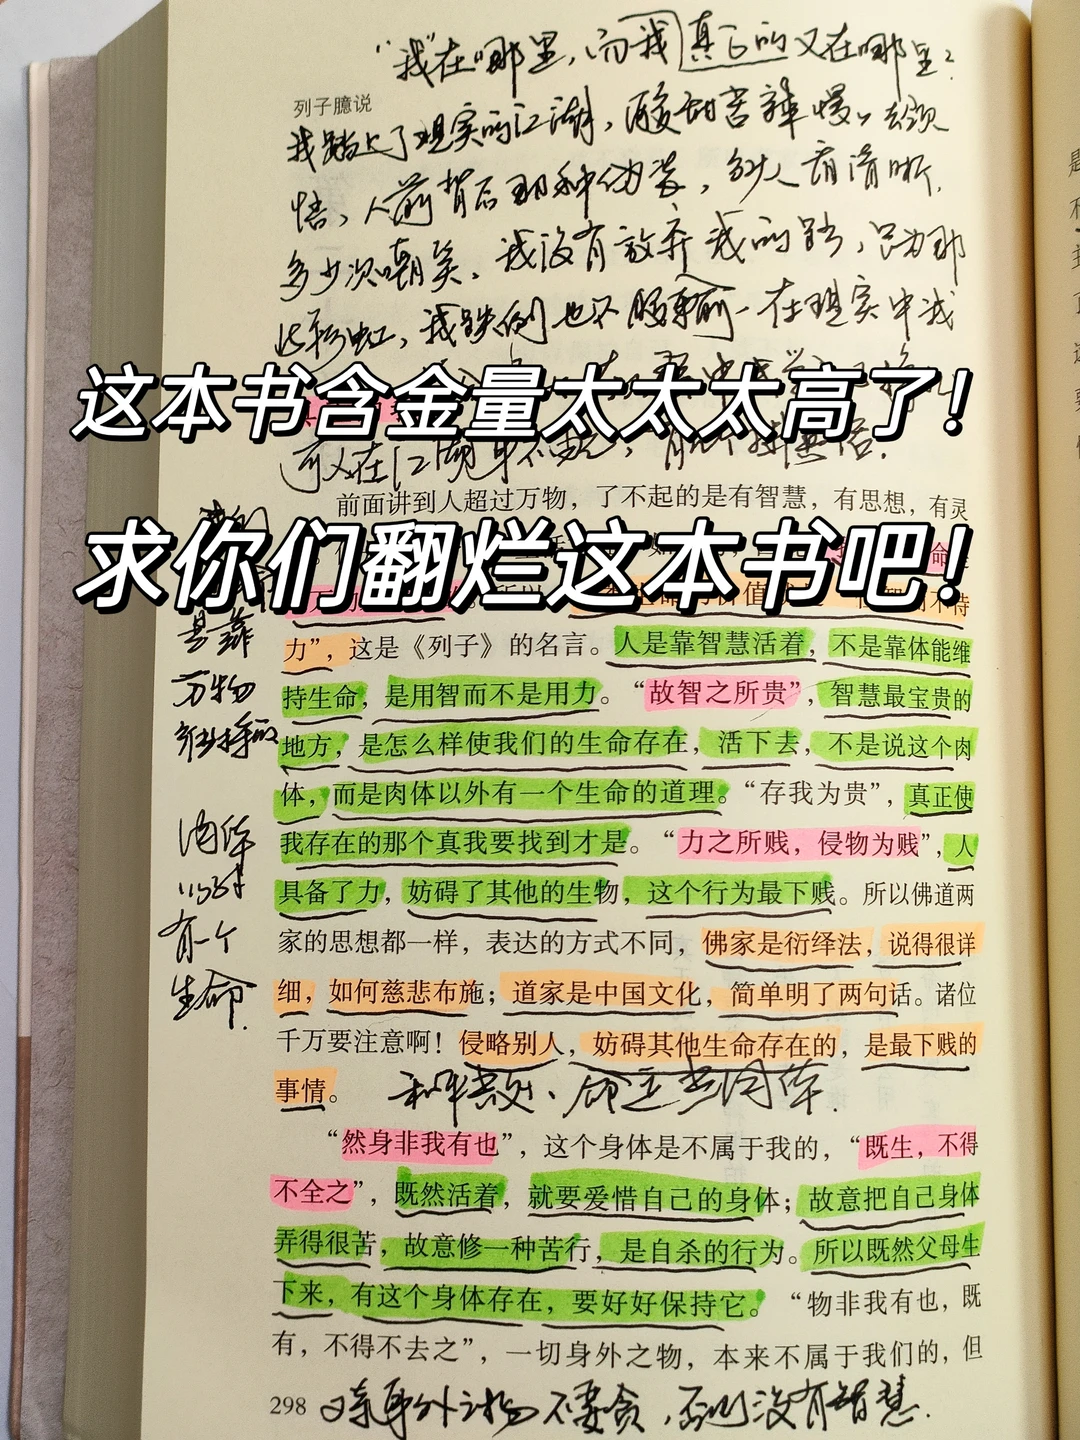 “我”在哪里，而我真正的又在哪里？
列子臆说
我踏上了现实的江湖，酸甜苦辣慢慢去领
悟，人前背后那种伪装，多少人看清晰，
多少次嘲笑，我没有放弃我的路，只为那
些彩虹，我跌倒也不服输—在现实中我
这本书含金量太太太高了！
可人在江湖身不由己，
前面讲到人超过万物，了不起的是有智慧，有思想，有灵
求你们翻烂这本书吧！
力”，这是《列子》的名言。人是靠智慧活着，不是靠体能维
持生命，是用智而不是用力。“故智之所贵”，智慧最宝贵的
地方，是怎么样使我们的生命存在，活下去，不是说这个肉
体，而是肉体以外有一个生命的道理。“存我为贵”，真正使
我存在的那个真我要找到才是。“力之所贱，侵物为贱”，人
具备了力，妨碍了其他的生物，这个行为最下贱。所以佛道两
家的思想都一样，表达的方式不同，佛家是衍绎法，说得很详
细，如何慈悲布施；道家是中国文化，简单明了两句话。诸位
千万要注意啊！侵略别人，妨碍其他生命存在的，是最下贱的
事情。
是靠
万物
维持的
肉体
以外
有一个
生命.
“然身非我有也”，这个身体是不属于我的，“既生，不得
不全之”，既然活着，就要爱惜自己的身体；故意把自己身体
弄得很苦，故意修一种苦行，是自杀的行为。所以既然父母生
下来，有这个身体存在，要好好保持它。“物非我有也，既
有，不得不去之”，一切身外之物，本来不属于我们的，但
298
对身外之物不要贪，否则没有智慧.